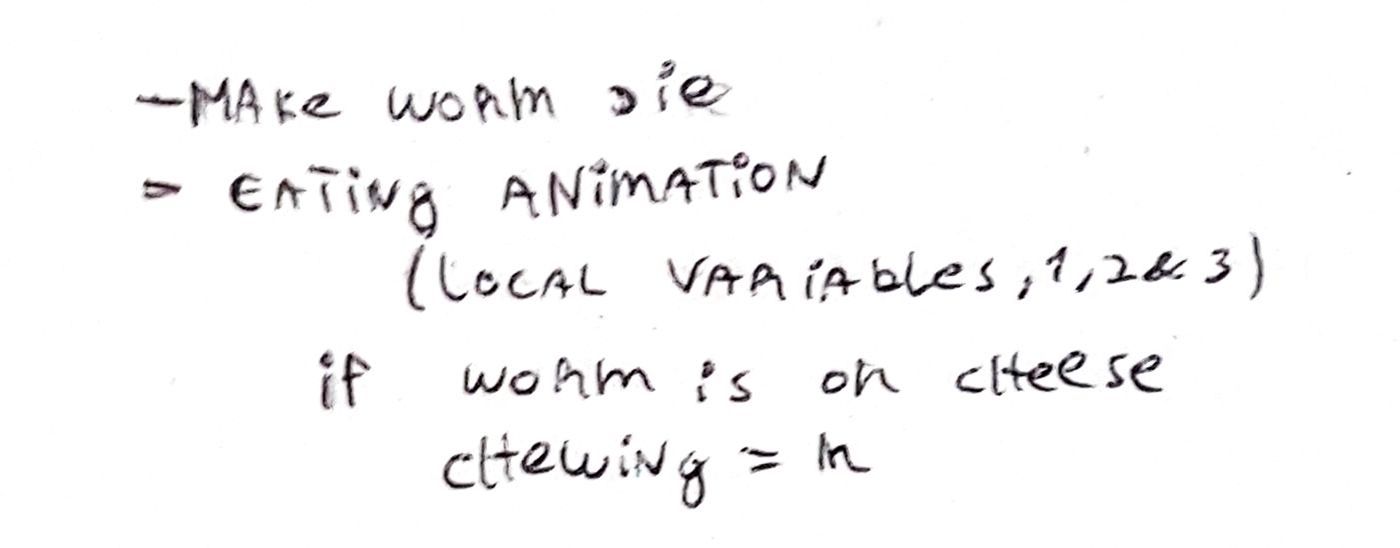 - MAKe worm die
- EATiNg ANiMATiON
(LOCAL VARiAbles, 1, 2 & 3)
if worm is on cHeese
cHewiNg = n